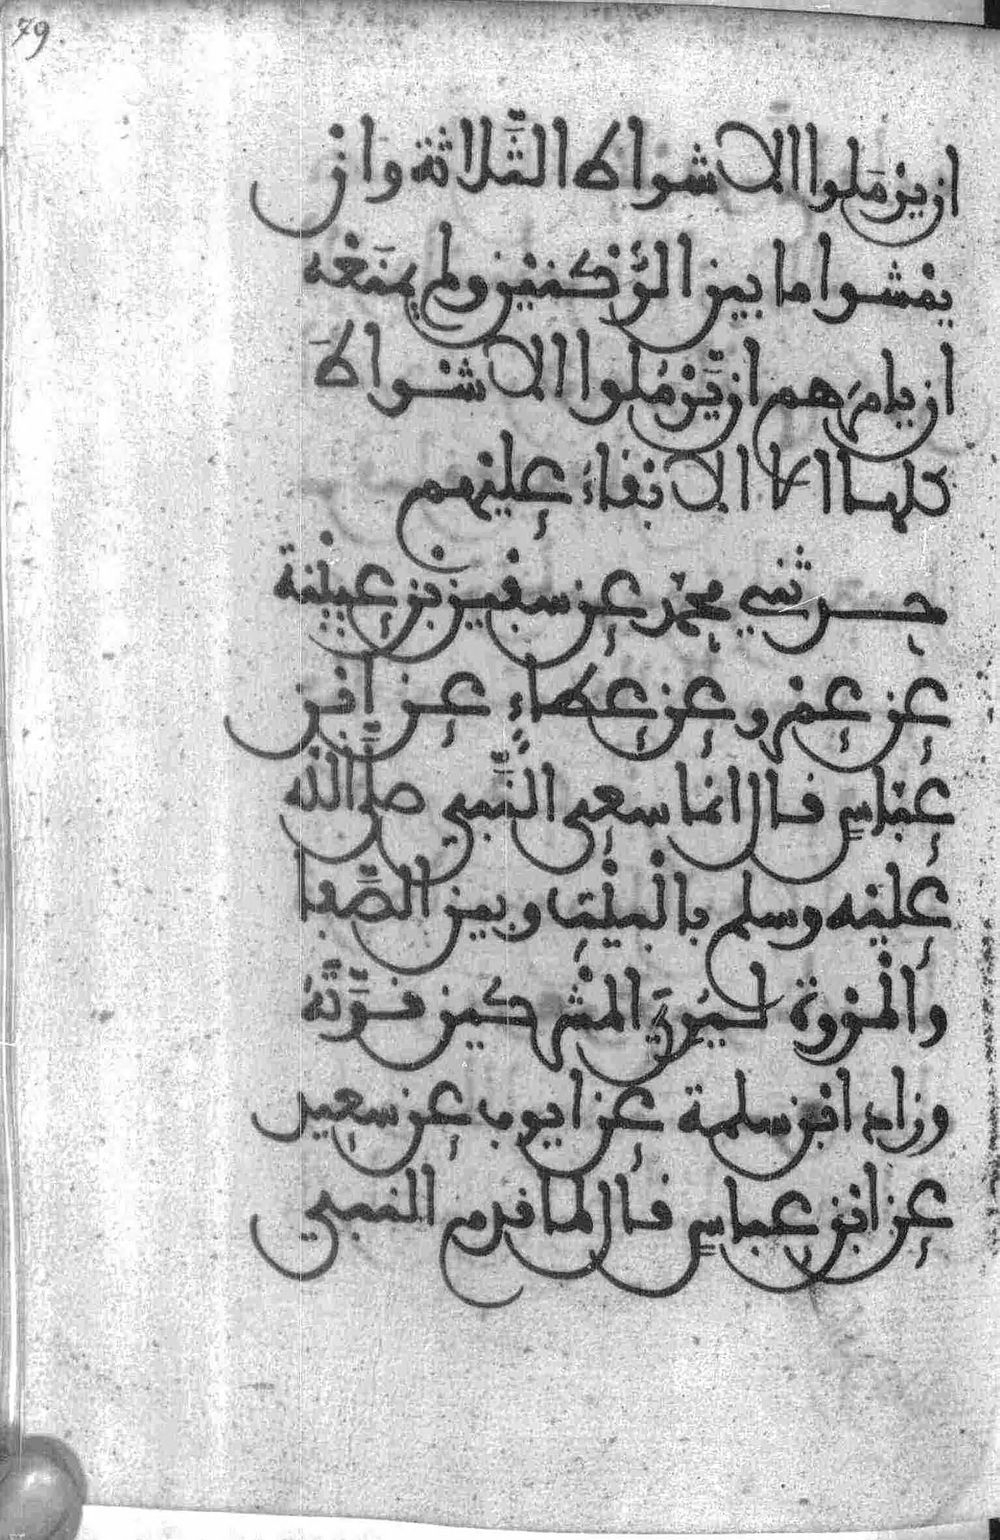 79
ان يرملوا الاشواط الثَّلاثة وَان
يمْشوا ما بين الرُّكنين ولم يمنَعْه
ان يامرَهم ان يَّرْمُلوا الاشْواطَ
كلها الا الابْقاءُ عليْهم
حدثني محمّد عن سفين بن عيينة
عن عمْرو عن عطاءٍ عن ابن
عبّاسٍ قال انما سعى النَّبي صلَّى الله
عليْه وسلم بالْبيْتِ وبين الصَّفا
والْمرْوة ليُرِيَ المشْركين قوَّتَهُ
وزاد ابن سلمة عن ايوب عن سعيد
عن ابن عباسٍ قال لما قدم النبي